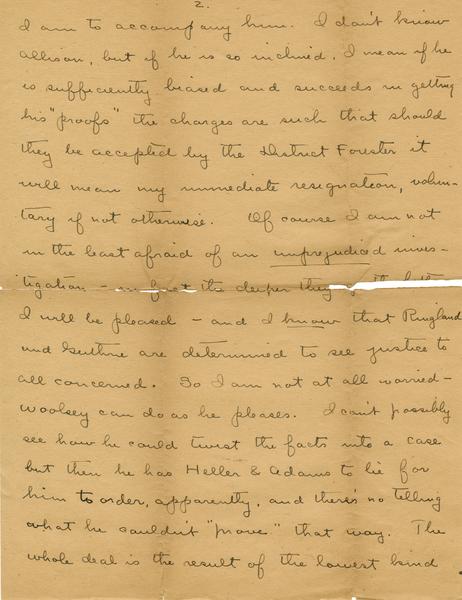 2.
I am to accompany him. I don't know
Allison, but if he is so inclined, I mean if he
is sufficiently biased and succeeds in getting
his "proofs" the charges are such that should
they be accepted by the District Forester it
will mean my immediate resignation, volun-
tary if not otherwise. Of course I am not
in the least afraid of an unprejudiced inves-
tigation - in fact the deeper they
I will be pleased - and I know that Ringland
and Guthrie are determined to see justice to
all concerned. So I am not at all worried -
Woolsey can do as he pleases. I can't possibly
see how he could twist the facts into a case
but then he has Heller & Adams to lie for
him to order, apparently, and there's no telling
what he couldn't "prove" that way. The
whole deal is the result of the lowest kind